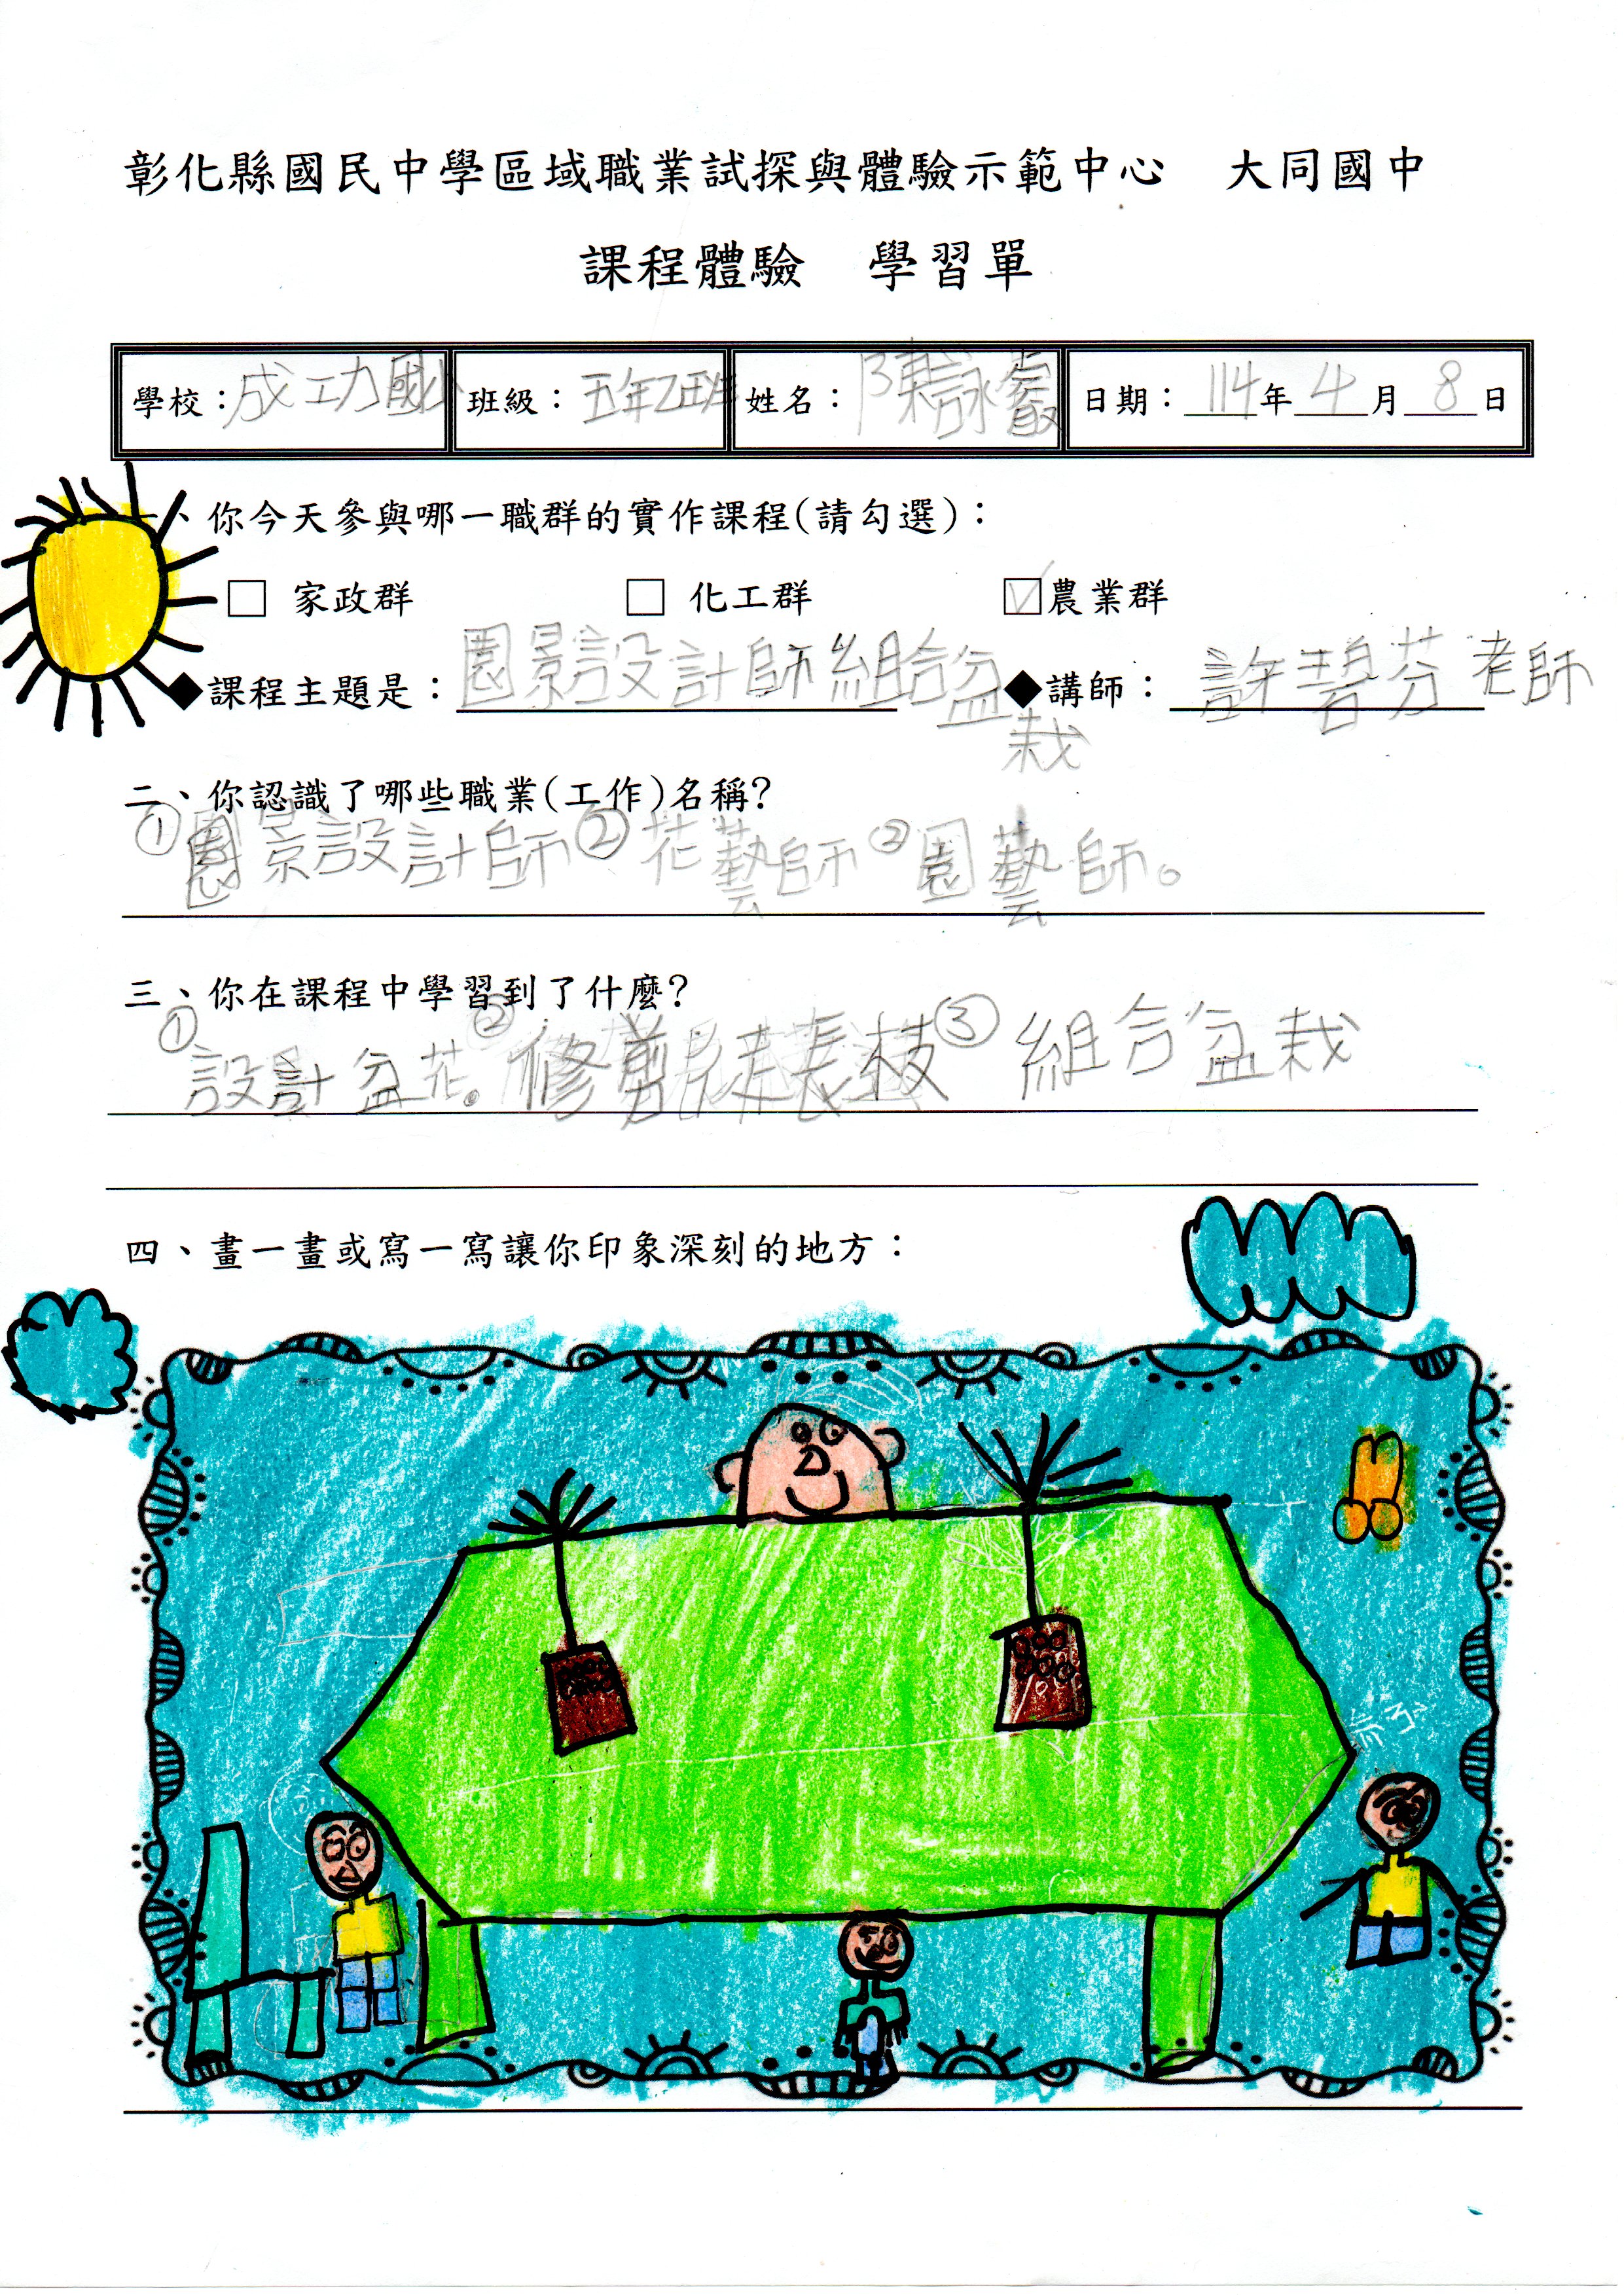 彰化縣國民中學區域職業試探與體驗示範中心　大同國中
課程體驗　學習單
學校：成功國小 班級：五年乙班 姓名：陳詠叡 日期：114年4月8日
一、你今天參與哪一職群的實作課程(請勾選)：
□ 家政群 □ 化工群 ☑農業群
◆課程主題是：園景設計師組合盆栽 ◆講師：許碧芬老師
二、你認識了哪些職業(工作)名稱?
①園景設計師②花藝師②園藝師。
三、你在課程中學習到了什麼?
①設計盆花。②修剪 枝③組合盆栽
四、畫一畫或寫一寫讓你印象深刻的地方：